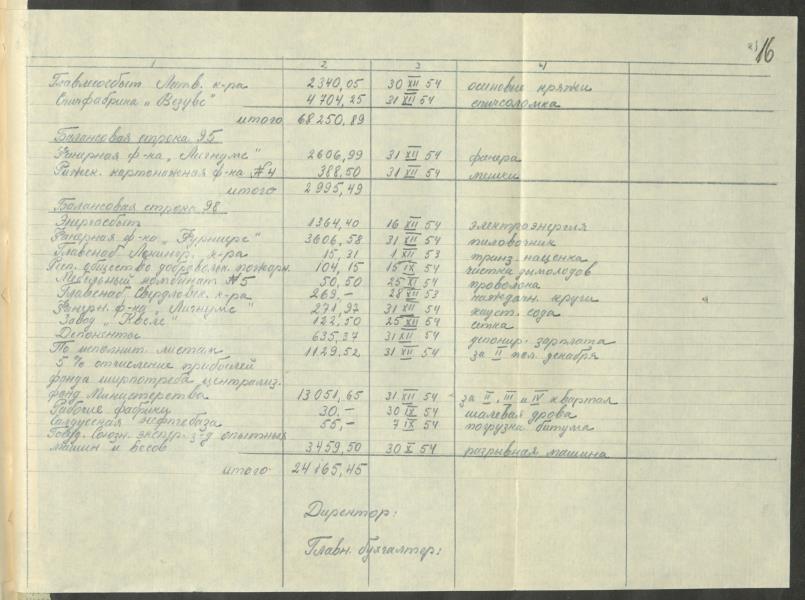 16
1 2 3 4
Главлесосбыт Латв. к-ра 2340,05 30 XII 54 осиновые кряжи
Спичфабрика „Везувс" 4704,25 31 XII 54 спичсоломка
итого 68250,89
Балансовая строка 95
Фанерная ф-ка „Лигнумс" 2606,99 31 XII 54 фанера
Рижск. картонажная ф-ка №4 388,50 31 XII 54 мешки
итого 2995,49
Балансовая строка 98
Энергосбыт 1364,40 16 XII 54 электроэнергия
Фанерная ф-ка „Фурниерс" 3606,58 31 XII 54 пиловочник
Главснаб Ленингр. к-ра 15,31 1 XII 53 транз. наценка
Респ. общество доброволн. пожарн. 104,15 15 IX 54 чистка дымоходов
Мебельный комбинат №5 50,50 25 XI 54 проволока
Главснаб Свердловск. к-ра 269,- 28 XII 53 наждачн. круги
Фанерн. ф-ка „Лигнумс" 271,97 31 XII 54 кауст. сода
Завод „Квеле" 122,50 25 XII 54 сетка
Депоненты 635,37 31 XII 54 депонир. зарплата
По исполнит. листам 1129,52 31 XII 54 за II пол. декабря
5% отчисление прибылей
фонда ширпотреба централиз.
фонд Министерства 13051,65 31 XII 54 за II, III и IV квартал
Рабочие фабрики 30,- 30 IX 54 шалевая дрова
Салдусская нефтебаза 55,- 7 IX 54 погрузка битума
Госуд. Союзн. экспер. з-д опытных
машин и весов 3459,50 30 X 54 разрывная машина
итого 24165,45
Директор:
Главн. бухгалтер: